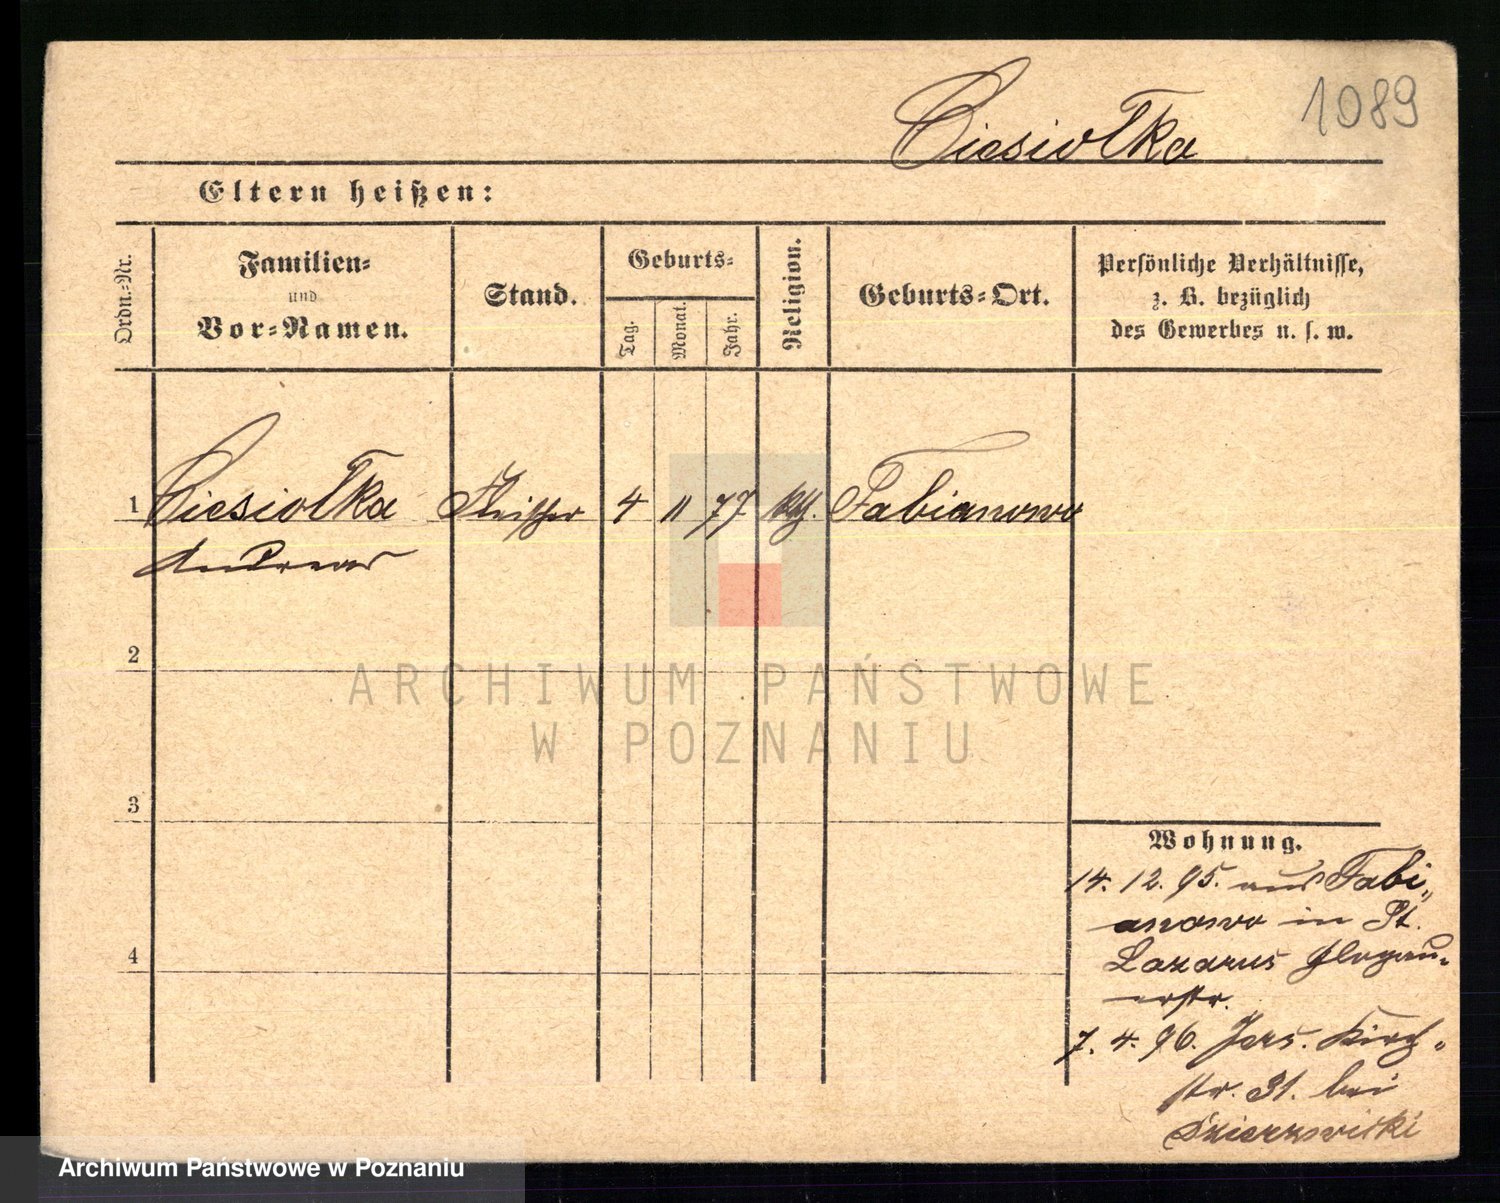 1089
Ciesiołka
Eltern heißen:
Ordn.-Nr.
Familien-
und
Vor-Namen.
Stand.
Geburts-
Tag.
Monat.
Jahr.
Religion.
Geburts-Ort.
Persönliche Verhältnisse,
z. B. bezüglich
des Gewerbes u. s. w.
1 Ciesiołka Fleischer 4 11 77 kth. Fabianowo
Andreas
2
3
4
Wohnung.
14. 12. 95. aus Fabi„
anowo in St.
Lazarus Glogau-
erstr.
7. 4. 96. Jers. Kirch-
str. 31. bei
ARCHIWUM PAŃSTWOWE
W POZNANIU
Archiwum Państwowe w Poznaniu